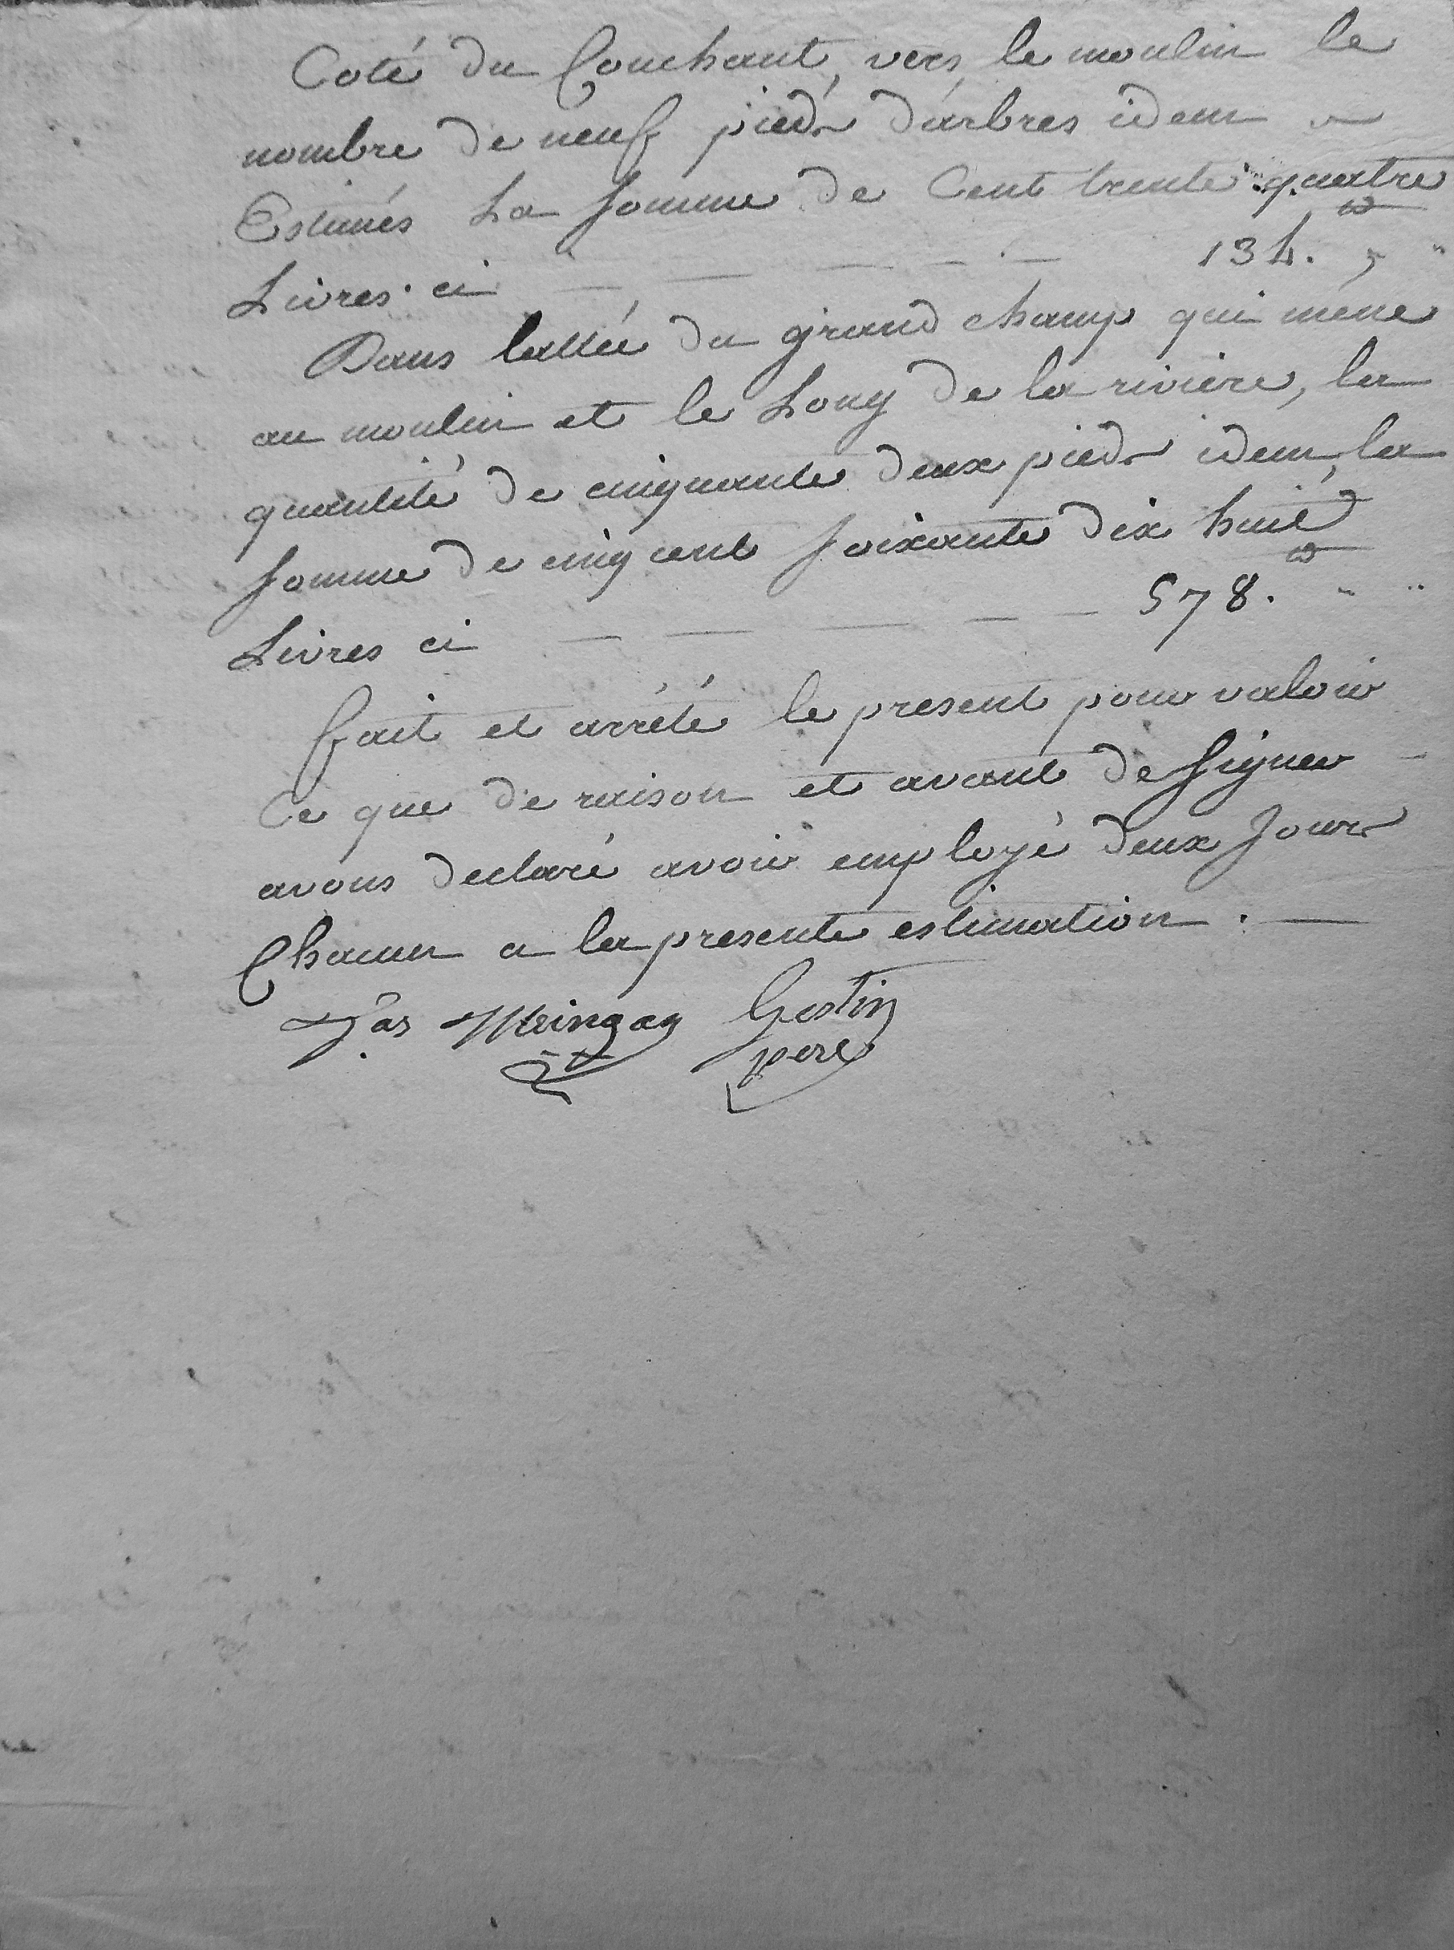 Coté du Couchant, vers le moulin le
nombre de neuf pieds d'arbres idem
Estimés La somme de Cent trente quatre
Livres. ci 134. " "
Dans lallée du grand champ qui mène
au moulin et le Long de la rivière, la
quantité de cinquante deux pieds idem, la
somme de cinq cent soixante dix huit
Livres ci 578. " "
fait et arrêté le present pour valoir
Ce que de raison et avant de signer
avons declaré avoir employé deux Jours
Chacun a la presente estimation.
Mingag Gestin
pere